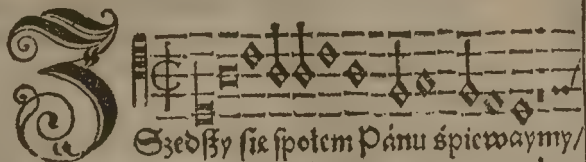 Z
Szedßy sie społem Pánu śpiewaymy/